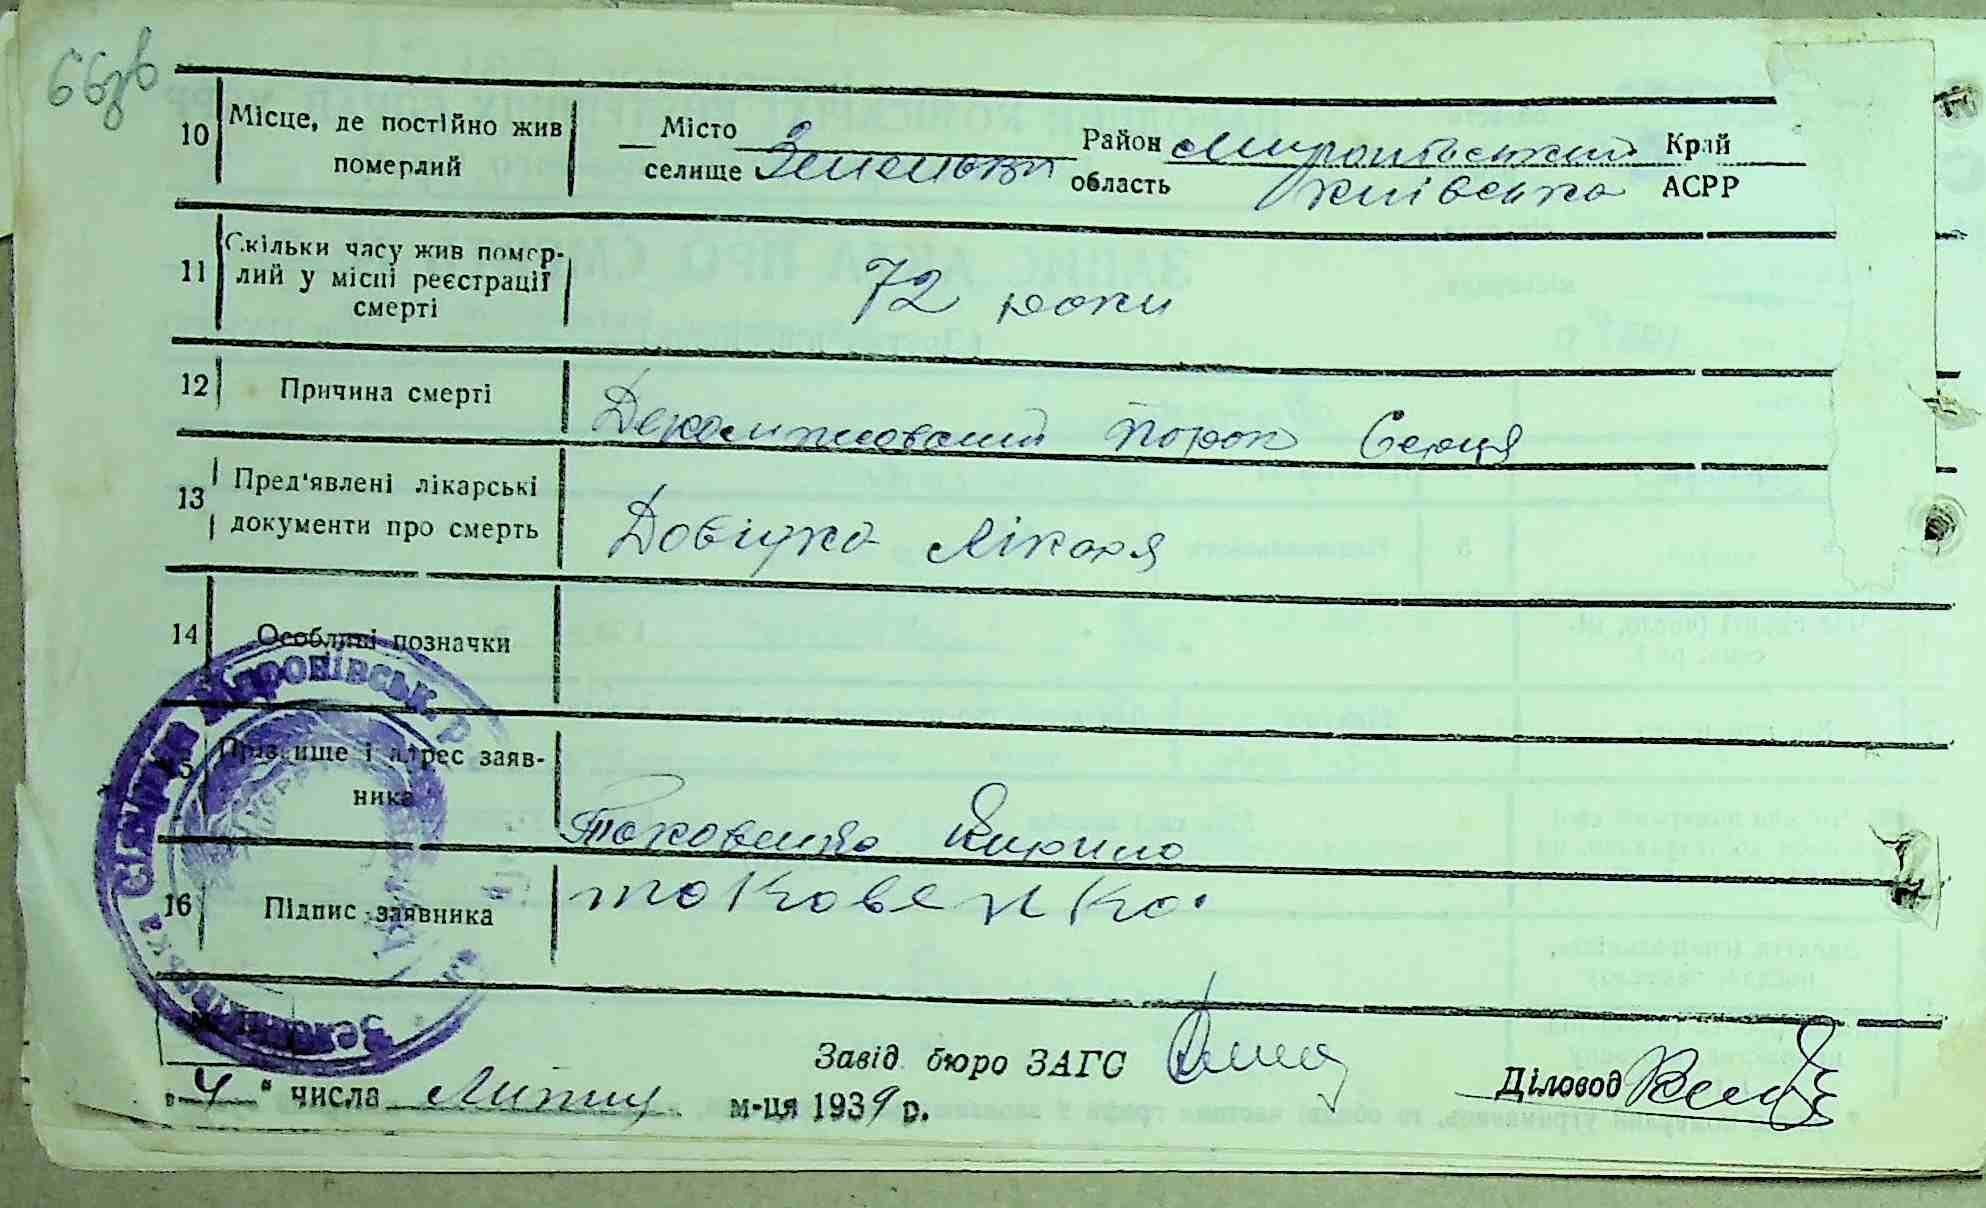 66зв
10 Місце, де постійно жив померлий
Місто
селище Зеленьки
Район Миронівський Край
область Київська АСРР
11 Скільки часу жив помер-
лий у місці реєстрації
смерті
72 роки
12 Причина смерті
порок Серця
13 Пред'явлені лікарські
документи про смерть
Довідка Лікаря
14 Особливі позначки
15 Прізвище і адрес заяв-
ника
Токовенко Кирило
16 Підпис заявника
токовенко.
Зеленьківська Сільрада Миронівськ. р
Завід. бюро ЗАГС
Діловод
„4“ числа Липця м-ця 1939 р.